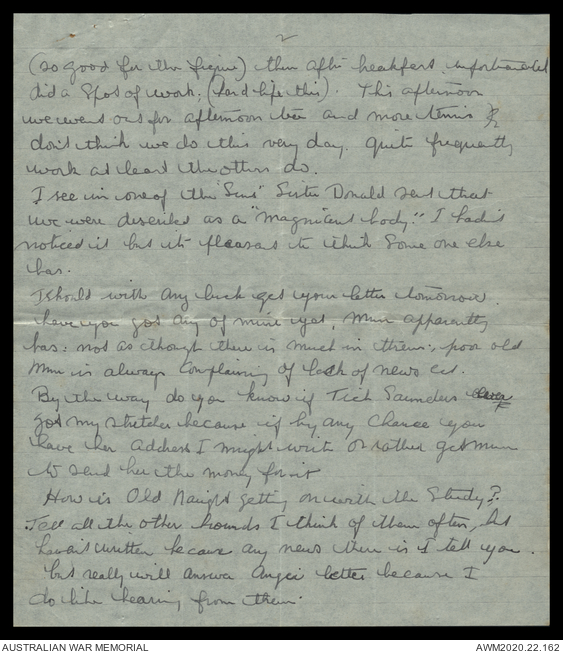 2
(so good for the figure) then after breakfast unfortunately
did a spot of work; (hard life this). This afternoon
we went out for afternoon tea and more tennis
don't think we do this every day. Quite frequently
work at least the others do.
I see in one of the "Suns" Sister Donald sent that
we were described as a "magnificent body." I hadn't
noticed it but its pleasant to think some one else
has.
I should with any luck get your letter tomorrow.
have you got any of mine yet, Mum apparently
has: not as though there is much in them, poor old
Mum is always complaining of lack of news etc.
By the way do you know if Tich Saunders ever
got my stretcher because if by any chance you
have her address I might write or rather get Mum
to send her the money for it
How is Old Naught getting on with the Study?
Tell all the other hounds I think of them often, but
haven't written because any news there is I tell you.
but really will answer letter because I
do like hearing from them.
AUSTRALIAN WAR MEMORIAL
AWM2020.22.162